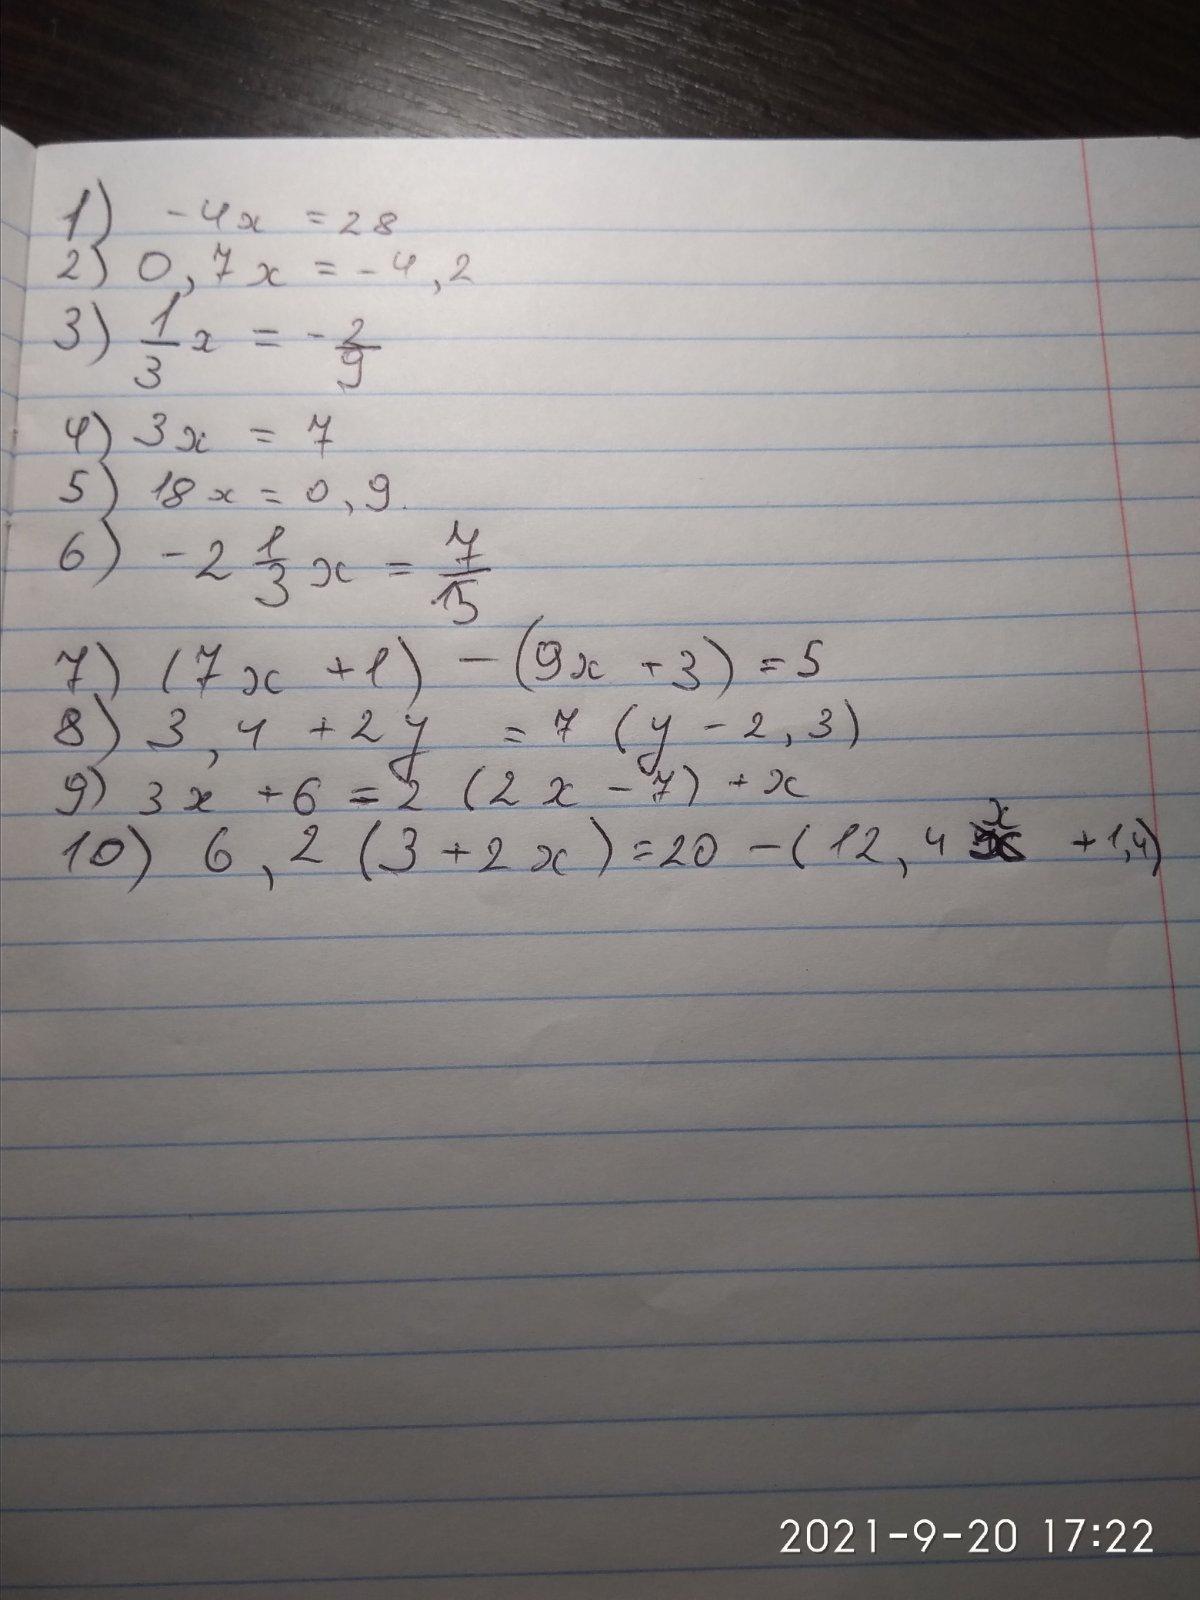 1) -4x = 28
2) 0,7x = -4,2
3) 1/3 x = - 2/9
4) 3x = 7
5) 18x = 0,9.
6) -2 1/3 x = 7/15
7) (7x +1) - (9x +3) = 5
8) 3,4 + 2y = 7 (y - 2,3)
9) 3x + 6 = 2 (2x - 7) + x
10) 6,2 (3 + 2x) = 20 - (12,4 x + 1,4)
2021-9-20 17:22